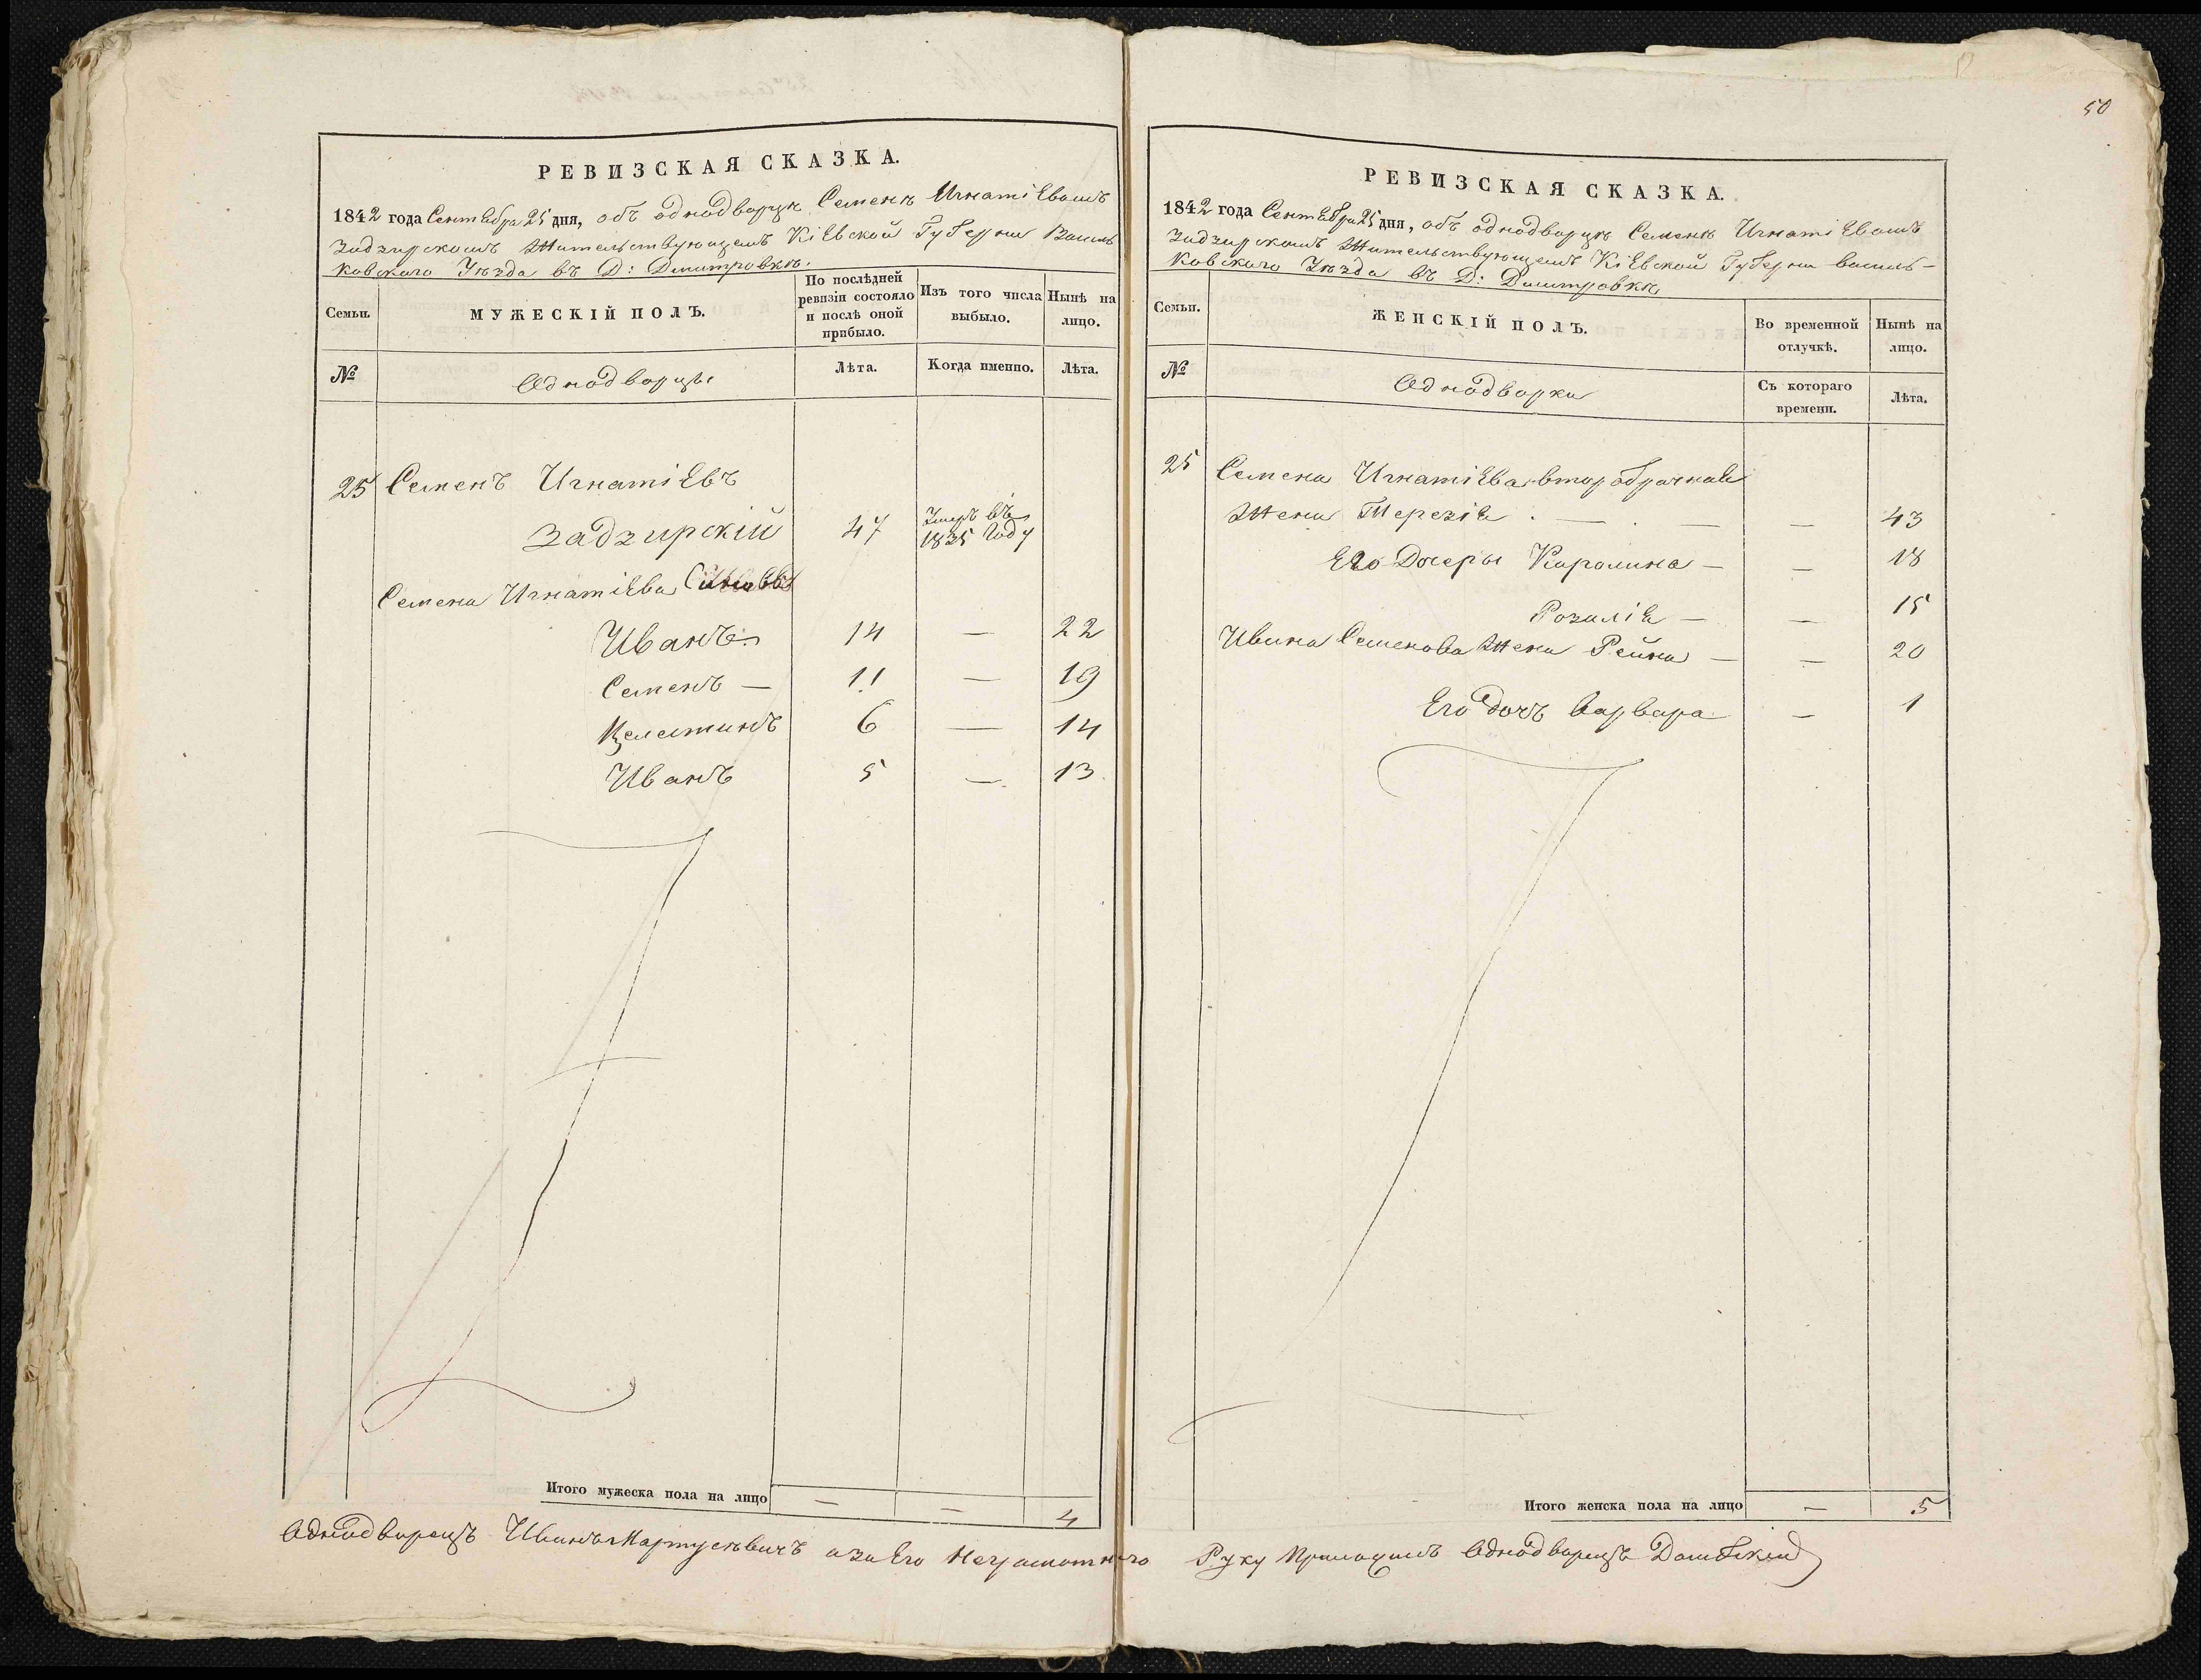 50
РЕВИЗСКАЯ СКАЗКА.
1842 года Сентебра 25 дня, объ однодворцѣ Семенѣ Игнатіевомъ
Задзирскомъ Жительствующемъ Кіевской Губерніи Василь
ковскаго Уѣзда въ Д: Дмитровкѣ.
Семьи.
МУЖЕСКІЙ ПОЛЪ.
По послѣдней
ревизіи состояло
и послѣ оной
прибыло.
Изъ того числа
выбыло.
Нынѣ на
лицо.
№
Однодворцы
Лѣта.
Когда именно.
Лѣта.
25 Семенъ Игнатіевъ
Задзирскій 47 Умеръ въ
1835 Году
Семена Игнатіева Сыновья
Иванъ 14 — 22
Семенъ — 11 — 19
Целестинъ 6 — 14
Иванъ 5 — 13
Итого мужеска пола на лицо — — 4
РЕВИЗСКАЯ СКАЗКА.
1842 года Сентебра 25 дня, объ однодворцѣ Семенѣ Игнатіевомъ
Задзирскомъ Жительствующемъ Кіевской Губерніи Василь-
ковскаго Уѣзда въ Д: Дмитровкѣ
Семьи.
ЖЕНСКІЙ ПОЛЪ.
Во временной
отлучкѣ.
Нынѣ на
лицо.
№
Однодворки
Съ котораго
времени.
Лѣта.
25 Семена Игнатіева второбрачная
Жена Терезія — — — 43
Его Дочеры Каролина — — 18
Розалія — — 15
Ивана Семенова Жена Рейна — — 20
Его дочь Варвара — 1
Итого женска пола на лицо — 5
Однодворецъ Иванъ Мартусевичъ а за Его Неграмотнаго Руку Приложилъ Однодворецъ Домбскій